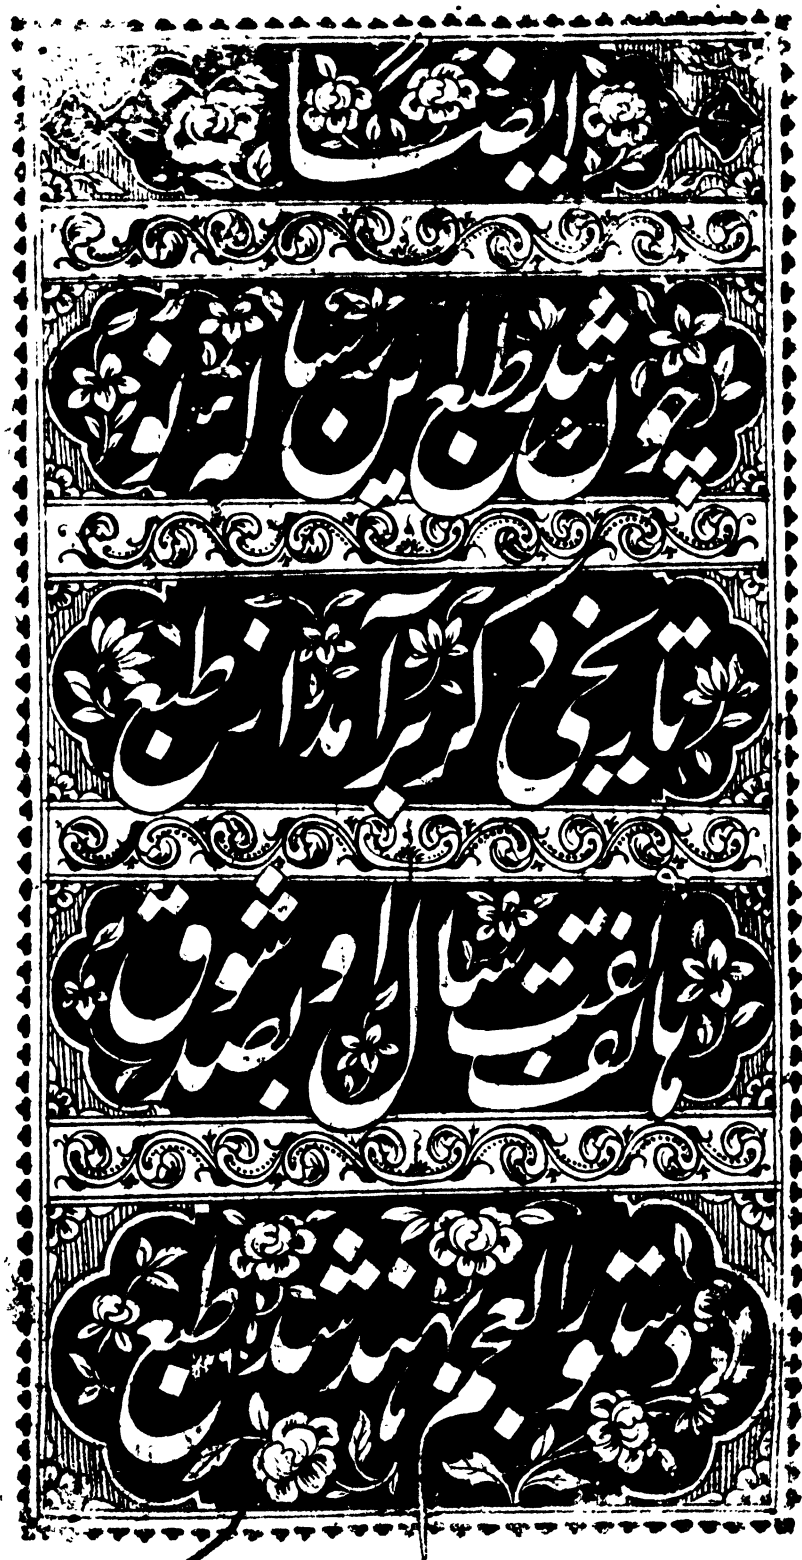 ایضا
چون شد طبع این رساله نو
تاریخ دگر بر آمد از طبع
هاتف گفت سال او بصد شوق
دستور العجم بهند شد طبع